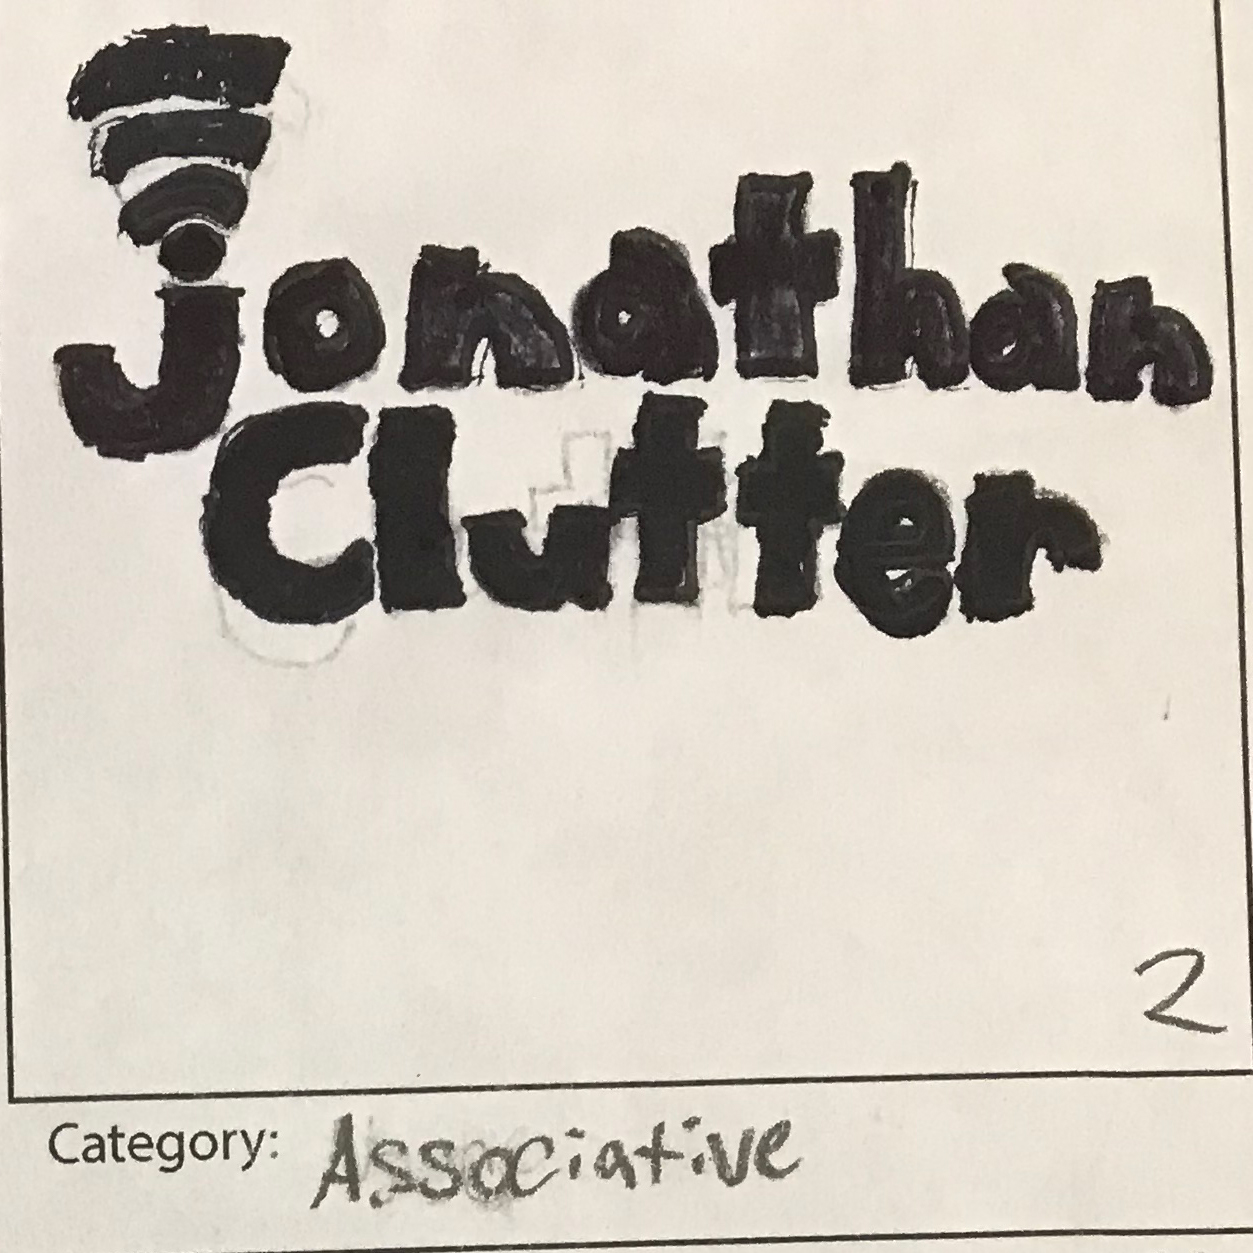 jonathan
Clutter
2
Category: Associative